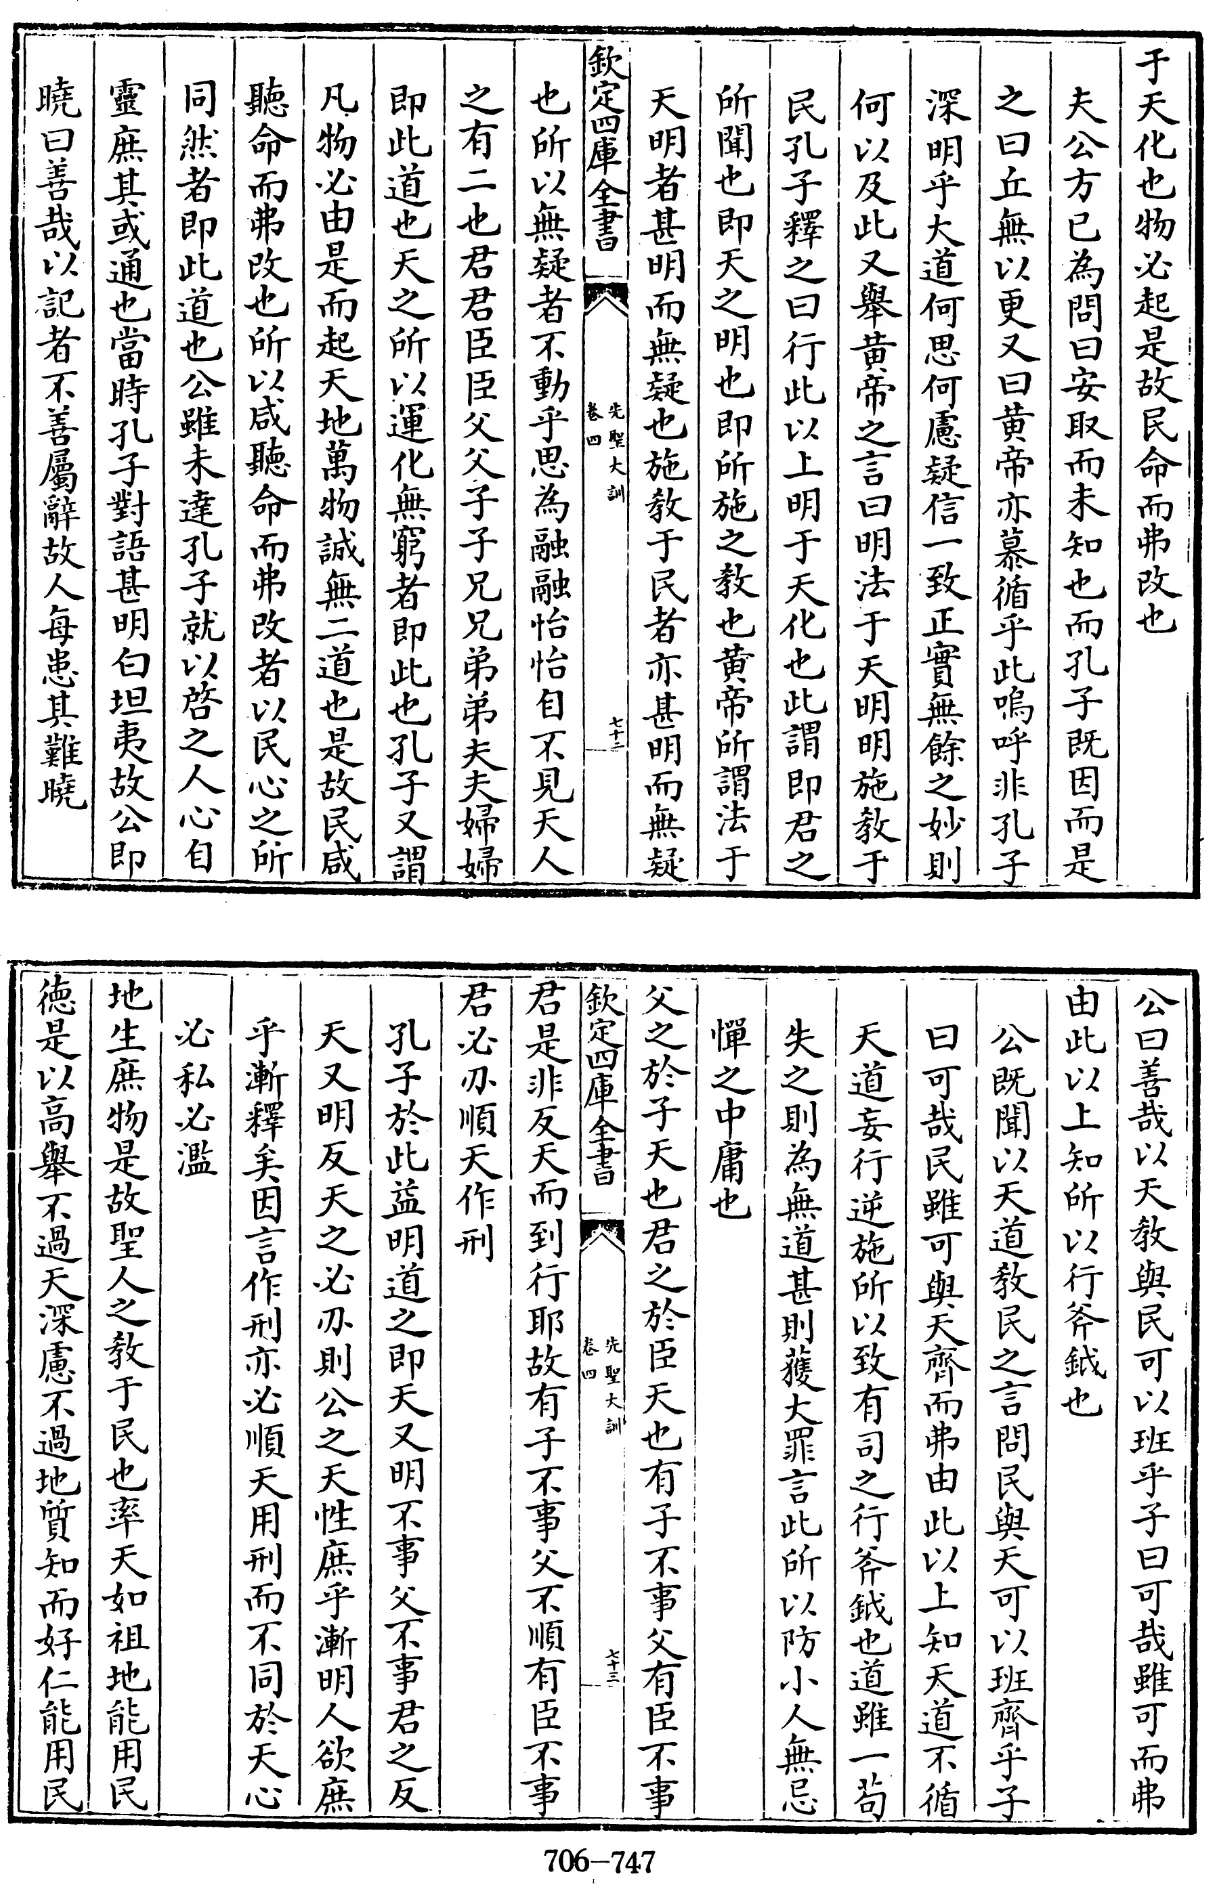 于天化也物必起是故民命而弗改也
夫公方已為問曰安取而未知也而孔子既因而是
之曰丘無以更又曰黄帝亦慕循乎此嗚呼非孔子
深明乎大道何思何慮疑信一致正實無餘之妙則
何以及此又舉黄帝之言曰明法于天明明施教于
民孔子釋之曰行此以上明于天化也此謂即君之
所聞也即天之明也即所施之教也黄帝所謂法于
天明者甚明而無疑也施教于民者亦甚明而無疑
欽定四庫全書
先聖大訓
卷四
七十二
也所以無疑者不動乎思為融融怡怡自不見天人
之有二也君君臣臣父父子子兄兄弟弟夫夫婦婦
即此道也天之所以運化無窮者即此也孔子又謂
凡物必由是而起天地萬物誠無二道也是故民咸
聽命而弗改也所以咸聽命而弗改者以民心之所
同然者即此道也公雖未達孔子就以啓之人心自
靈庶其或通也當時孔子對語甚明白坦夷故公即
曉曰善哉以記者不善屬辭故人每患其難曉
公曰善哉以天教與民可以班乎子曰可哉雖可而弗
由此以上知所以行斧鉞也
公既聞以天道教民之言問民與天可以班齊乎子
曰可哉民雖可與天齊而弗由此以上知天道不循
天道妄行逆施所以致有司之行斧鉞也道雖一茍
失之則為無道甚則獲大罪言此所以防小人無忌
憚之中庸也
父之於子天也君之於臣天也有子不事父有臣不事
欽定四庫全書
先聖大訓
卷四
七十三
君是非反天而到行耶故有子不事父不順有臣不事
君必刅順天作刑
孔子於此益明道之即天又明不事父不事君之反
天又明反天之必刅則公之天性庶乎漸明人欲庶
乎漸釋矣因言作刑亦必順天用刑而不同於天心
必私必濫
地生庶物是故聖人之教于民也率天如祖地能用民
德是以高舉不過天深慮不過地質知而好仁能用民
706-747